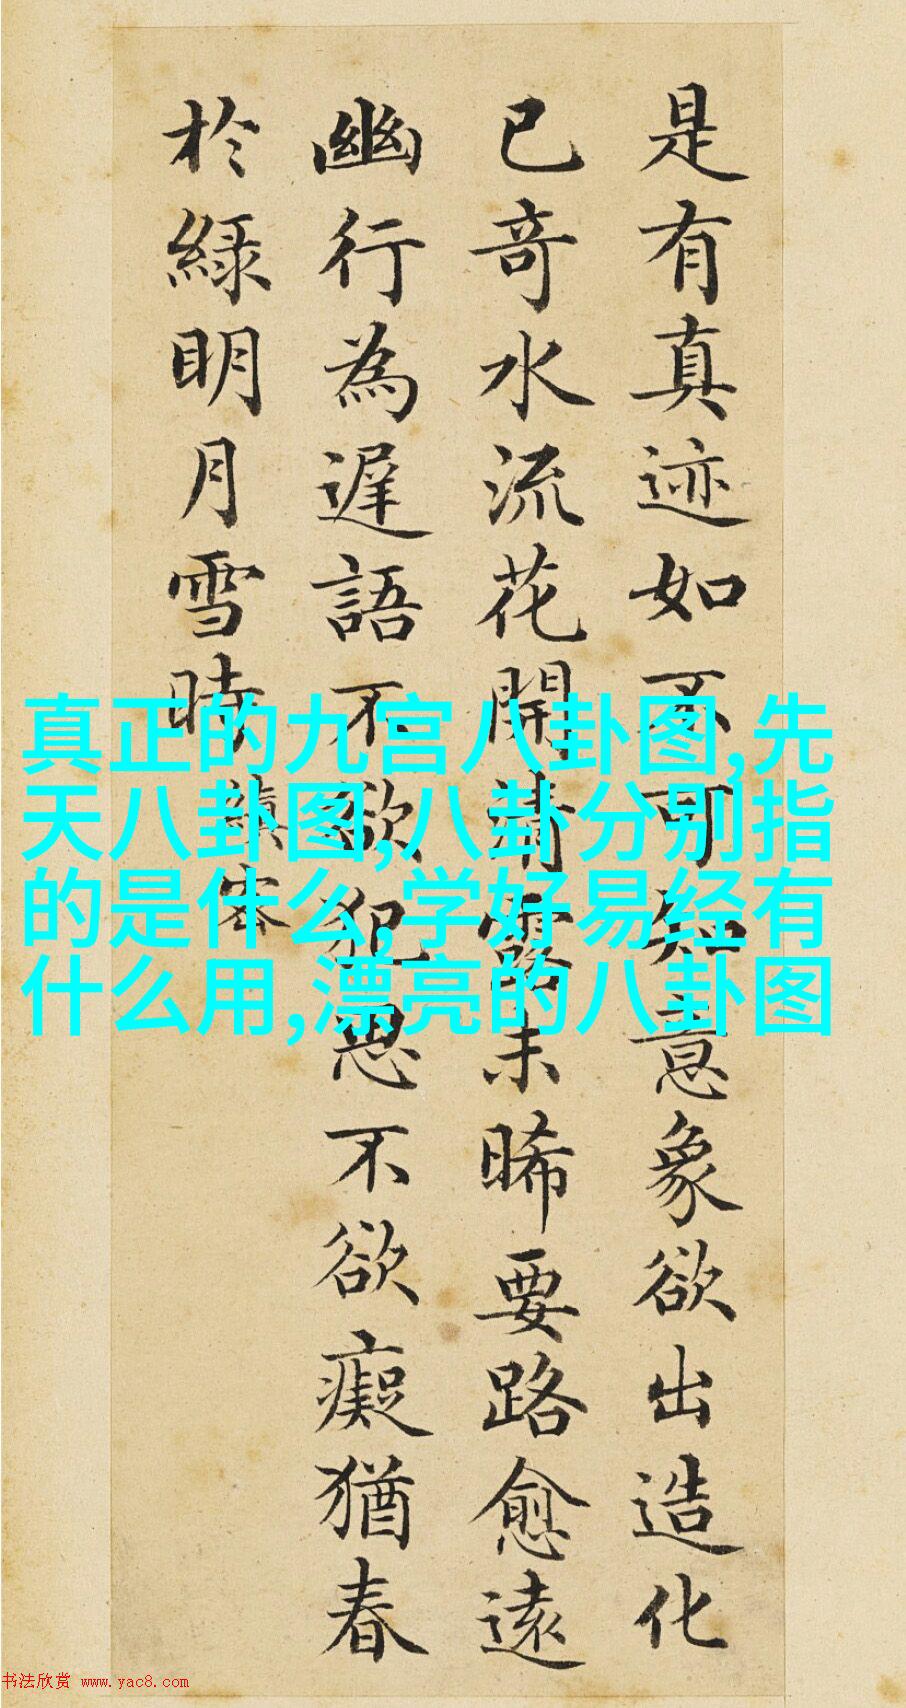 是有真迹如不可知意象欲出造化
已奇水流花開清露未晞要路愈遠
幽行為遲語不欲犯思不欲癡猶春
於綠明月雪時
縝密
真正的九宫八卦图,先
天八卦图,八卦分别指
的是什么,学好易经有
什么用,漂亮的八卦图
书法欣赏 www.yac8.com